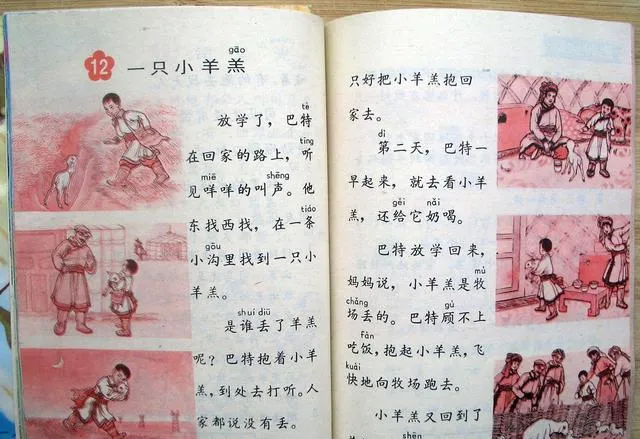 gāo
12 一只小羊羔
tè
放学了，巴特
tīng
在回家的路上，听
miē shēng
见咩咩的叫声。他
tiáo
东找西找，在一条
gōu
小沟里找到一只小
羊羔。
shuí diū
是谁丢了羊羔
呢？巴特抱着小羊
羔，到处去打听。人
家都说没有丢。
只好把小羊羔抱回
家去。
dì
第二天，巴特一
早起来，就去看小羊
gěi nǎi
羔，还给它奶喝。
巴特放学回来，
mù
妈妈说，小羊羔是牧
chǎng gù
场丢的。巴特顾不上
fàn
吃饭，抱起小羊羔，飞
kuài
快地向牧场跑去。
小羊羔又回到了
shēn